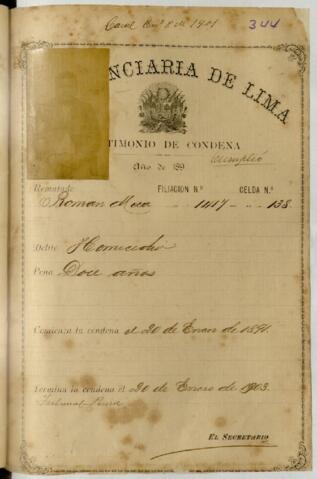 344
NCIARIA DE LIMA
TIMONIO DE CONDENA
Cumplió
Año de 189
Rematado FILIACION N.º CELDA N.º
Roman 1417 138
Delito Homicidio
Pena Doce años
Comienza la condena el 20 de Enero de 1891.
Termina la condena el 20 de Enero de 1903.
Tribunal
EL SECRETARIO